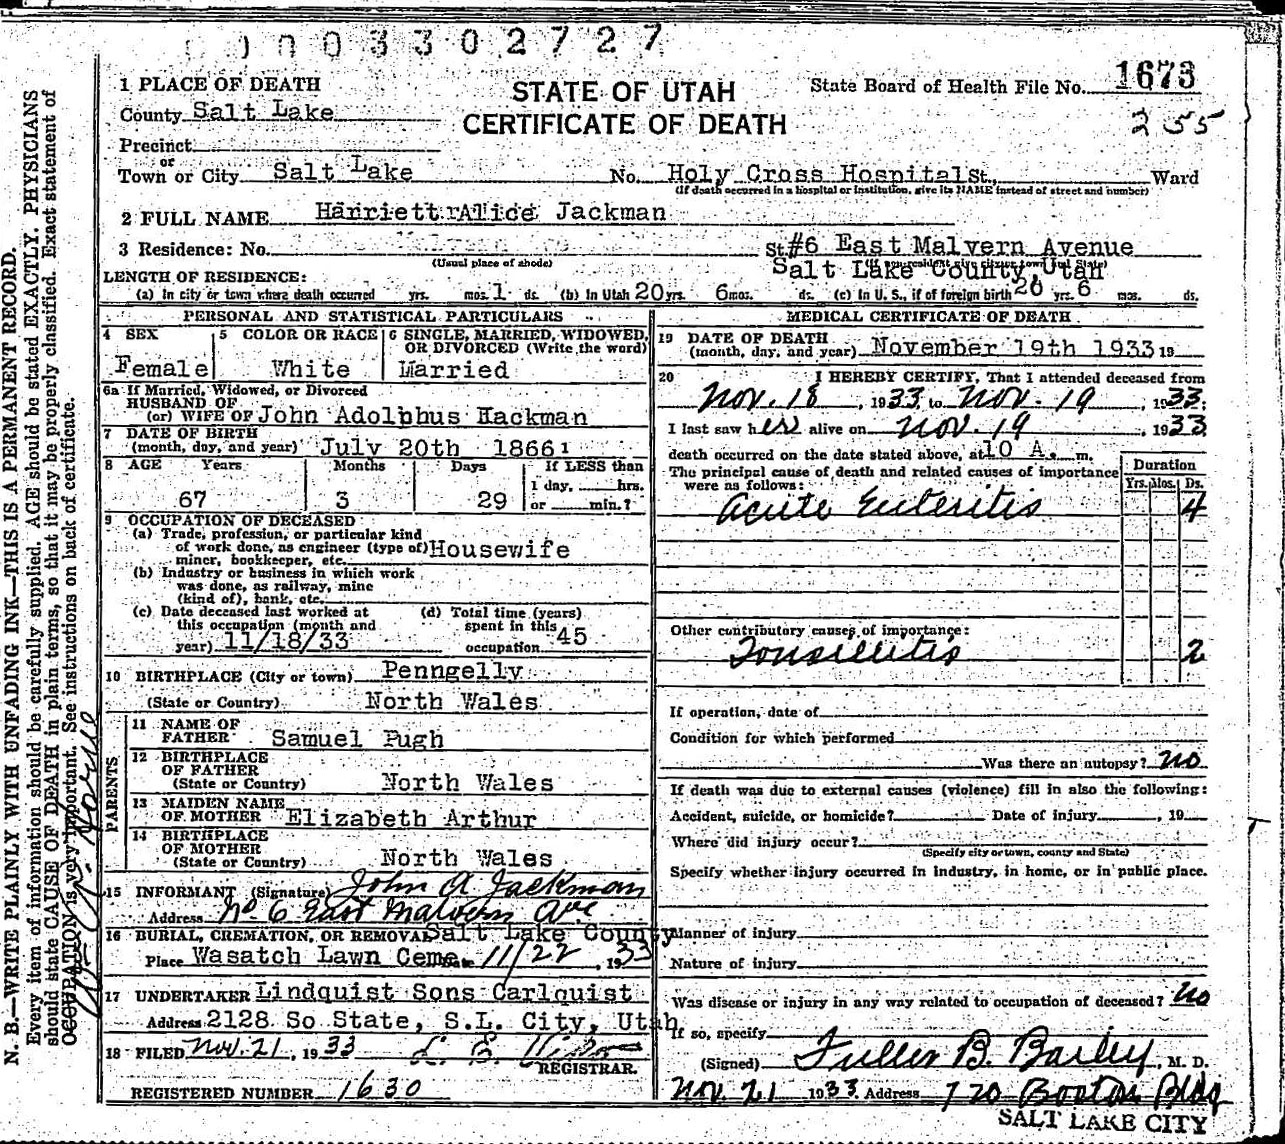 0003302727
1 PLACE OF DEATH
STATE OF UTAH
CERTIFICATE OF DEATH
State Board of Health File No. 1673
255
County Salt Lake
Precinct
or
Town or City Salt Lake No. Holy Cross Hospital St., Ward
(If death occurred in a hospital or institution, give its NAME instead of street and number)
2 FULL NAME Harriett Alice Jackman
3 Residence: No. St. #6 East Malvern Avenue
(Usual place of abode)
Salt Lake County, Utah
LENGTH OF RESIDENCE:
(a) In city or town where death occurred yrs. mos. 1 ds. (b) In Utah 20 yrs. 6 mos. ds. (c) In U. S., if of foreign birth 20 yrs. 6 mos. ds.
PERSONAL AND STATISTICAL PARTICULARS
4 SEX
Female
5 COLOR OR RACE
White
6 SINGLE, MARRIED, WIDOWED, OR DIVORCED (Write the word)
Married
6a If Married, Widowed, or Divorced
HUSBAND OF
(or) WIFE OF John Adolphus Hackman
7 DATE OF BIRTH
(month, day, and year) July 20th 1866
8 AGE Years Months Days If LESS than
1 day, hrs.
67 3 29 or min.?
9 OCCUPATION OF DECEASED
(a) Trade, profession, or particular kind
of work done, as engineer (type of) Housewife
miner, bookkeeper, etc.
(b) Industry or business in which work
was done, as railway, mine
(kind of), bank, etc.
(c) Date deceased last worked at
this occupation (month and
year) 11/18/33
(d) Total time (years)
spent in this
occupation 45
10 BIRTHPLACE (City or town) Penngelly
(State or Country) North Wales
PARENTS
11 NAME OF
FATHER Samuel Pugh
12 BIRTHPLACE
OF FATHER
(State or Country) North Wales
13 MAIDEN NAME
OF MOTHER Elizabeth Arthur
14 BIRTHPLACE
OF MOTHER
(State or Country) North Wales
15 INFORMANT (Signature) John A Jackman
Address No 6 East Malvern Ave
16 BURIAL, CREMATION, OR REMOVAL Salt Lake County
Place Wasatch Lawn Ceme Date 11/22, 1933
17 UNDERTAKER Lindquist Sons Carlquist
Address 2128 So State, S.L. City, Utah
18 FILED Nov. 21, 1933
REGISTRAR.
REGISTERED NUMBER 1630
MEDICAL CERTIFICATE OF DEATH
19 DATE OF DEATH
(month, day, and year) November 19th 1933 19
20 I HEREBY CERTIFY, That I attended deceased from
Nov. 18, 1933, to Nov. 19, 1933.
I last saw her alive on Nov. 19, 1933
death occurred on the date stated above, at 10 A. m.
The principal cause of death and related causes of importance
were as follows:
Duration
Yrs. Mos. Ds.
Acute Enteritis 4
Other contributory causes of importance:
Tonsillitis 2
If operation, date of
Condition for which performed
Was there an autopsy? no
If death was due to external causes (violence) fill in also the following:
Accident, suicide, or homicide? Date of injury, 19
Where did injury occur?
(Specify city or town, county and State)
Specify whether injury occurred in industry, in home, or in public place.
Manner of injury
Nature of injury
Was disease or injury in any way related to occupation of deceased? No
If so, specify
(Signed) Fuller B. Bailey, M. D.
Nov. 21 1933 Address 720 Boston Bldg
SALT LAKE CITY
N. B.—WRITE PLAINLY WITH UNFADING INK—THIS IS A PERMANENT RECORD.
Every item of information should be carefully supplied. AGE should be stated EXACTLY. PHYSICIANS
should state CAUSE OF DEATH in plain terms, so that it may be properly classified. Exact statement of
OCCUPATION is very important. See instructions on back of certificate.